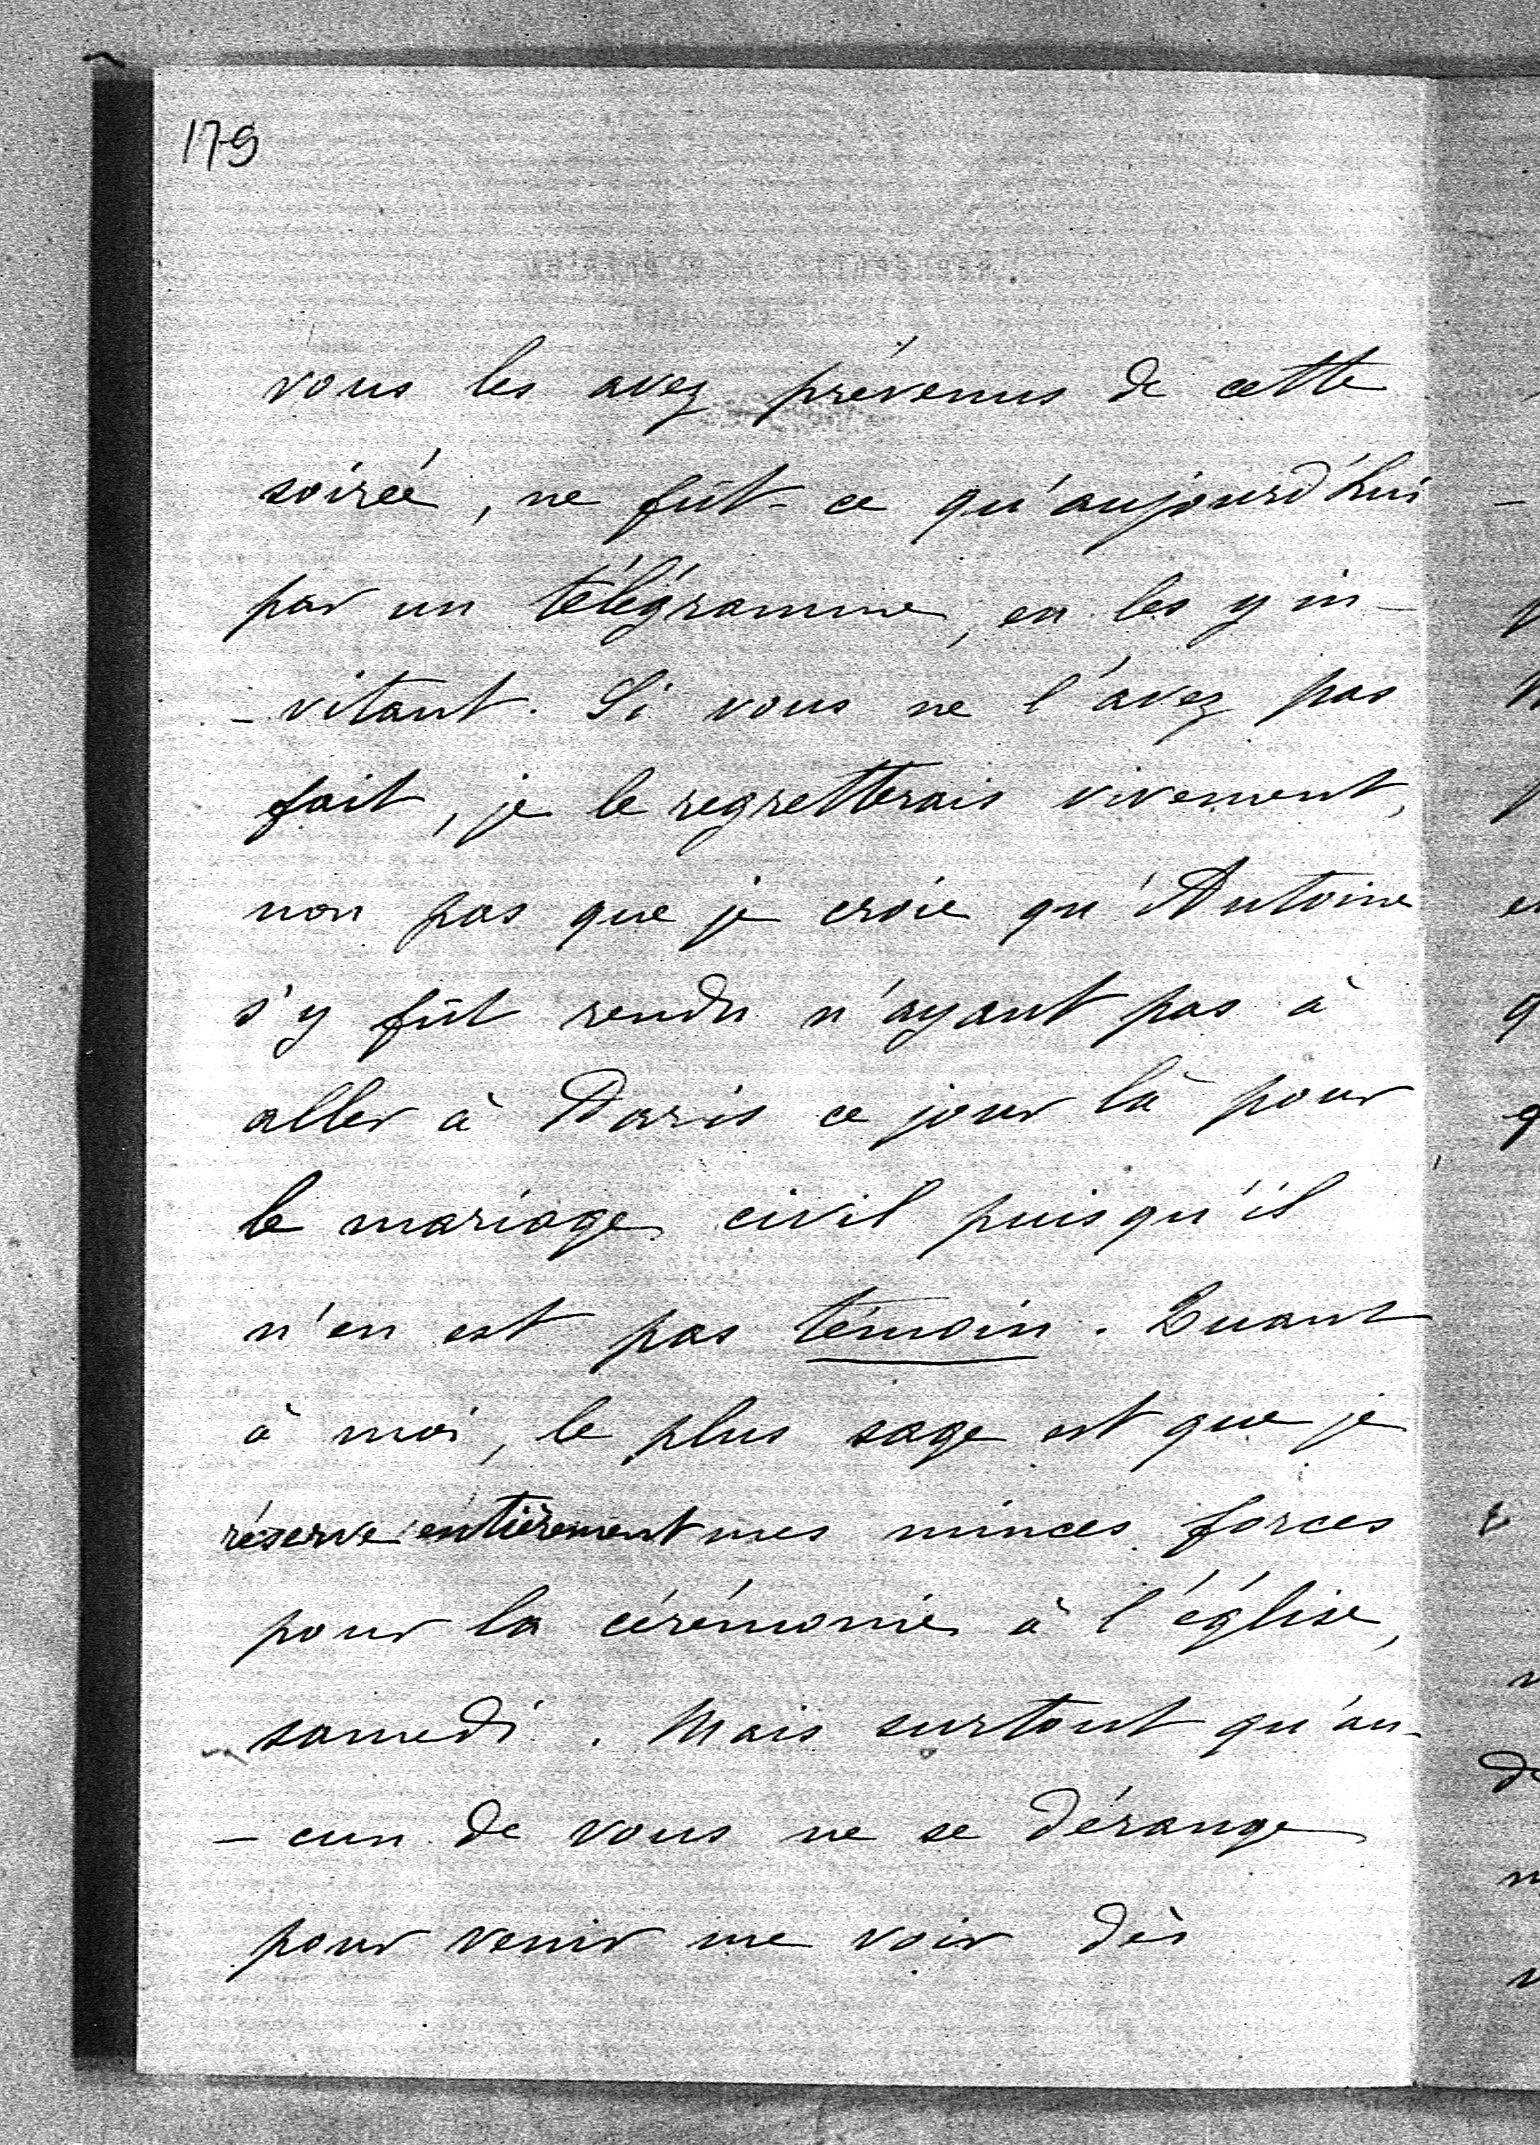 179
vous les avez prévenus de cette
soirée, ne fût-ce qu'aujourd'hui
par un télégramme, en les y in-
-vitant. Si vous ne l'avez pas
fait, je le regretterais vivement,
non pas que je croie qu'Antoine
s'y fût rendu n'ayant pas à
aller à Paris ce jour là pour
le mariage civil puisqu'il
n'en est pas témoin. Quant
à moi, le plus sage est que je
réserve entièrement mes minces forces
pour la cérémonie à l'église,
samedi. Mais surtout qu'au-
-cun de vous ne se dérange
pour venir me voir dès